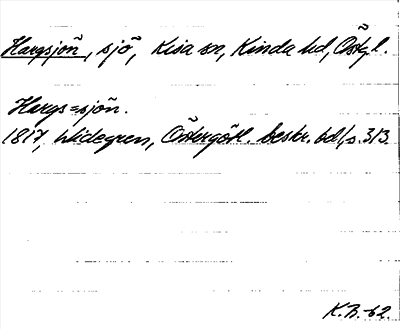 Hargsjön, sjö, Kisa sn, Kinda hd, Östgl.
Hargs=sjön.
1817, Widegren, Östergötl. beskr. bd 1, s. 313.
K.B.-62